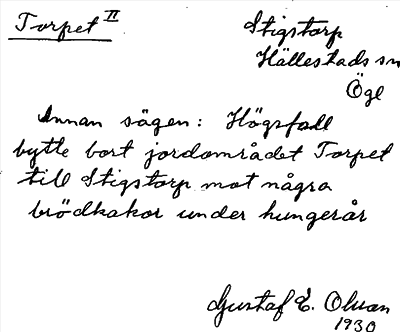 Torpet II
Stigstorp
Hällestads sn
Ögl
Annan sägen: Högsfall
bytte bort jordområdet Torpet
till Stigstorp mot några
brödkakor under hungerår
Gustaf E. Olsson
1930